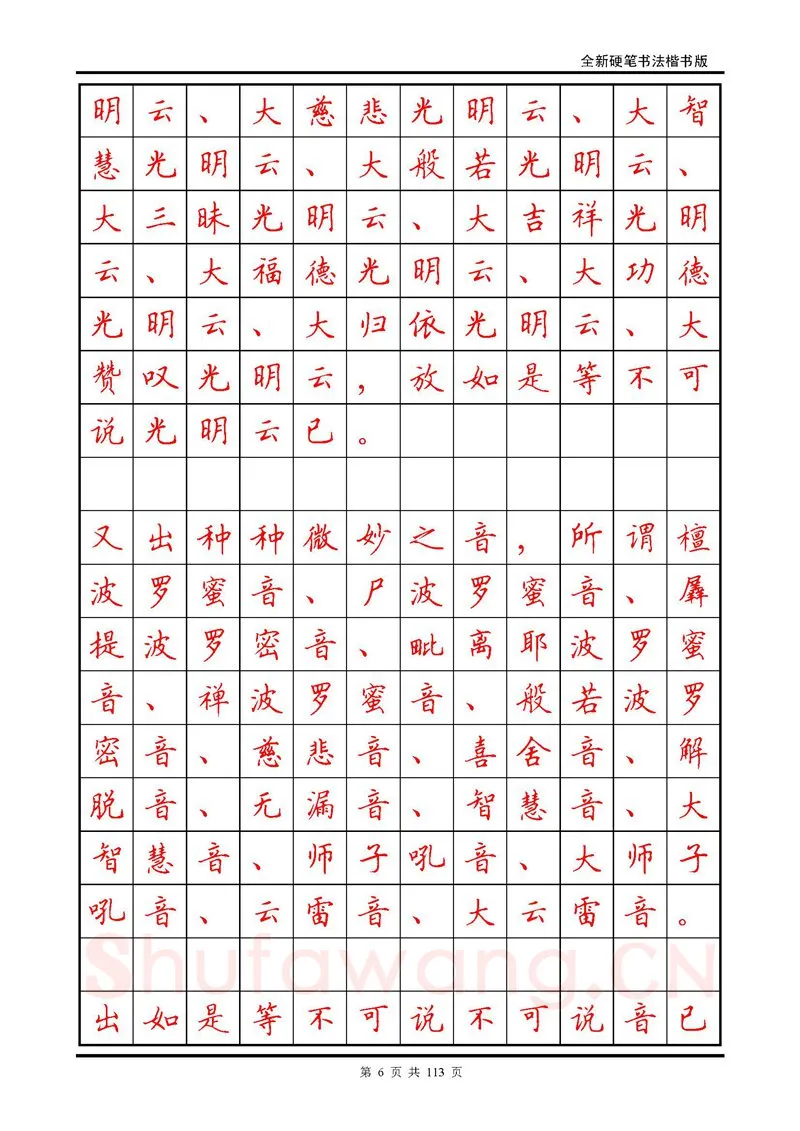 全新硬笔书法楷书版
明云、大慈悲光明云、大智
慧光明云、大般若光明云、
大三昧光明云、大吉祥光明
云、大福德光明云、大功德
光明云、大归依光明云、大
赞叹光明云，放如是等不可
说光明云已。
又出种种微妙之音，所谓檀
波罗蜜音、尸波罗蜜音、羼
提波罗密音、毗离耶波罗蜜
音、禅波罗蜜音、般若波罗
密音、慈悲音、喜舍音、解
脱音、无漏音、智慧音、大
智慧音、师子吼音、大师子
吼音、云雷音、大云雷音。
Shufawang.CN
出如是等不可说不可说音已
第 6 页 共 113 页